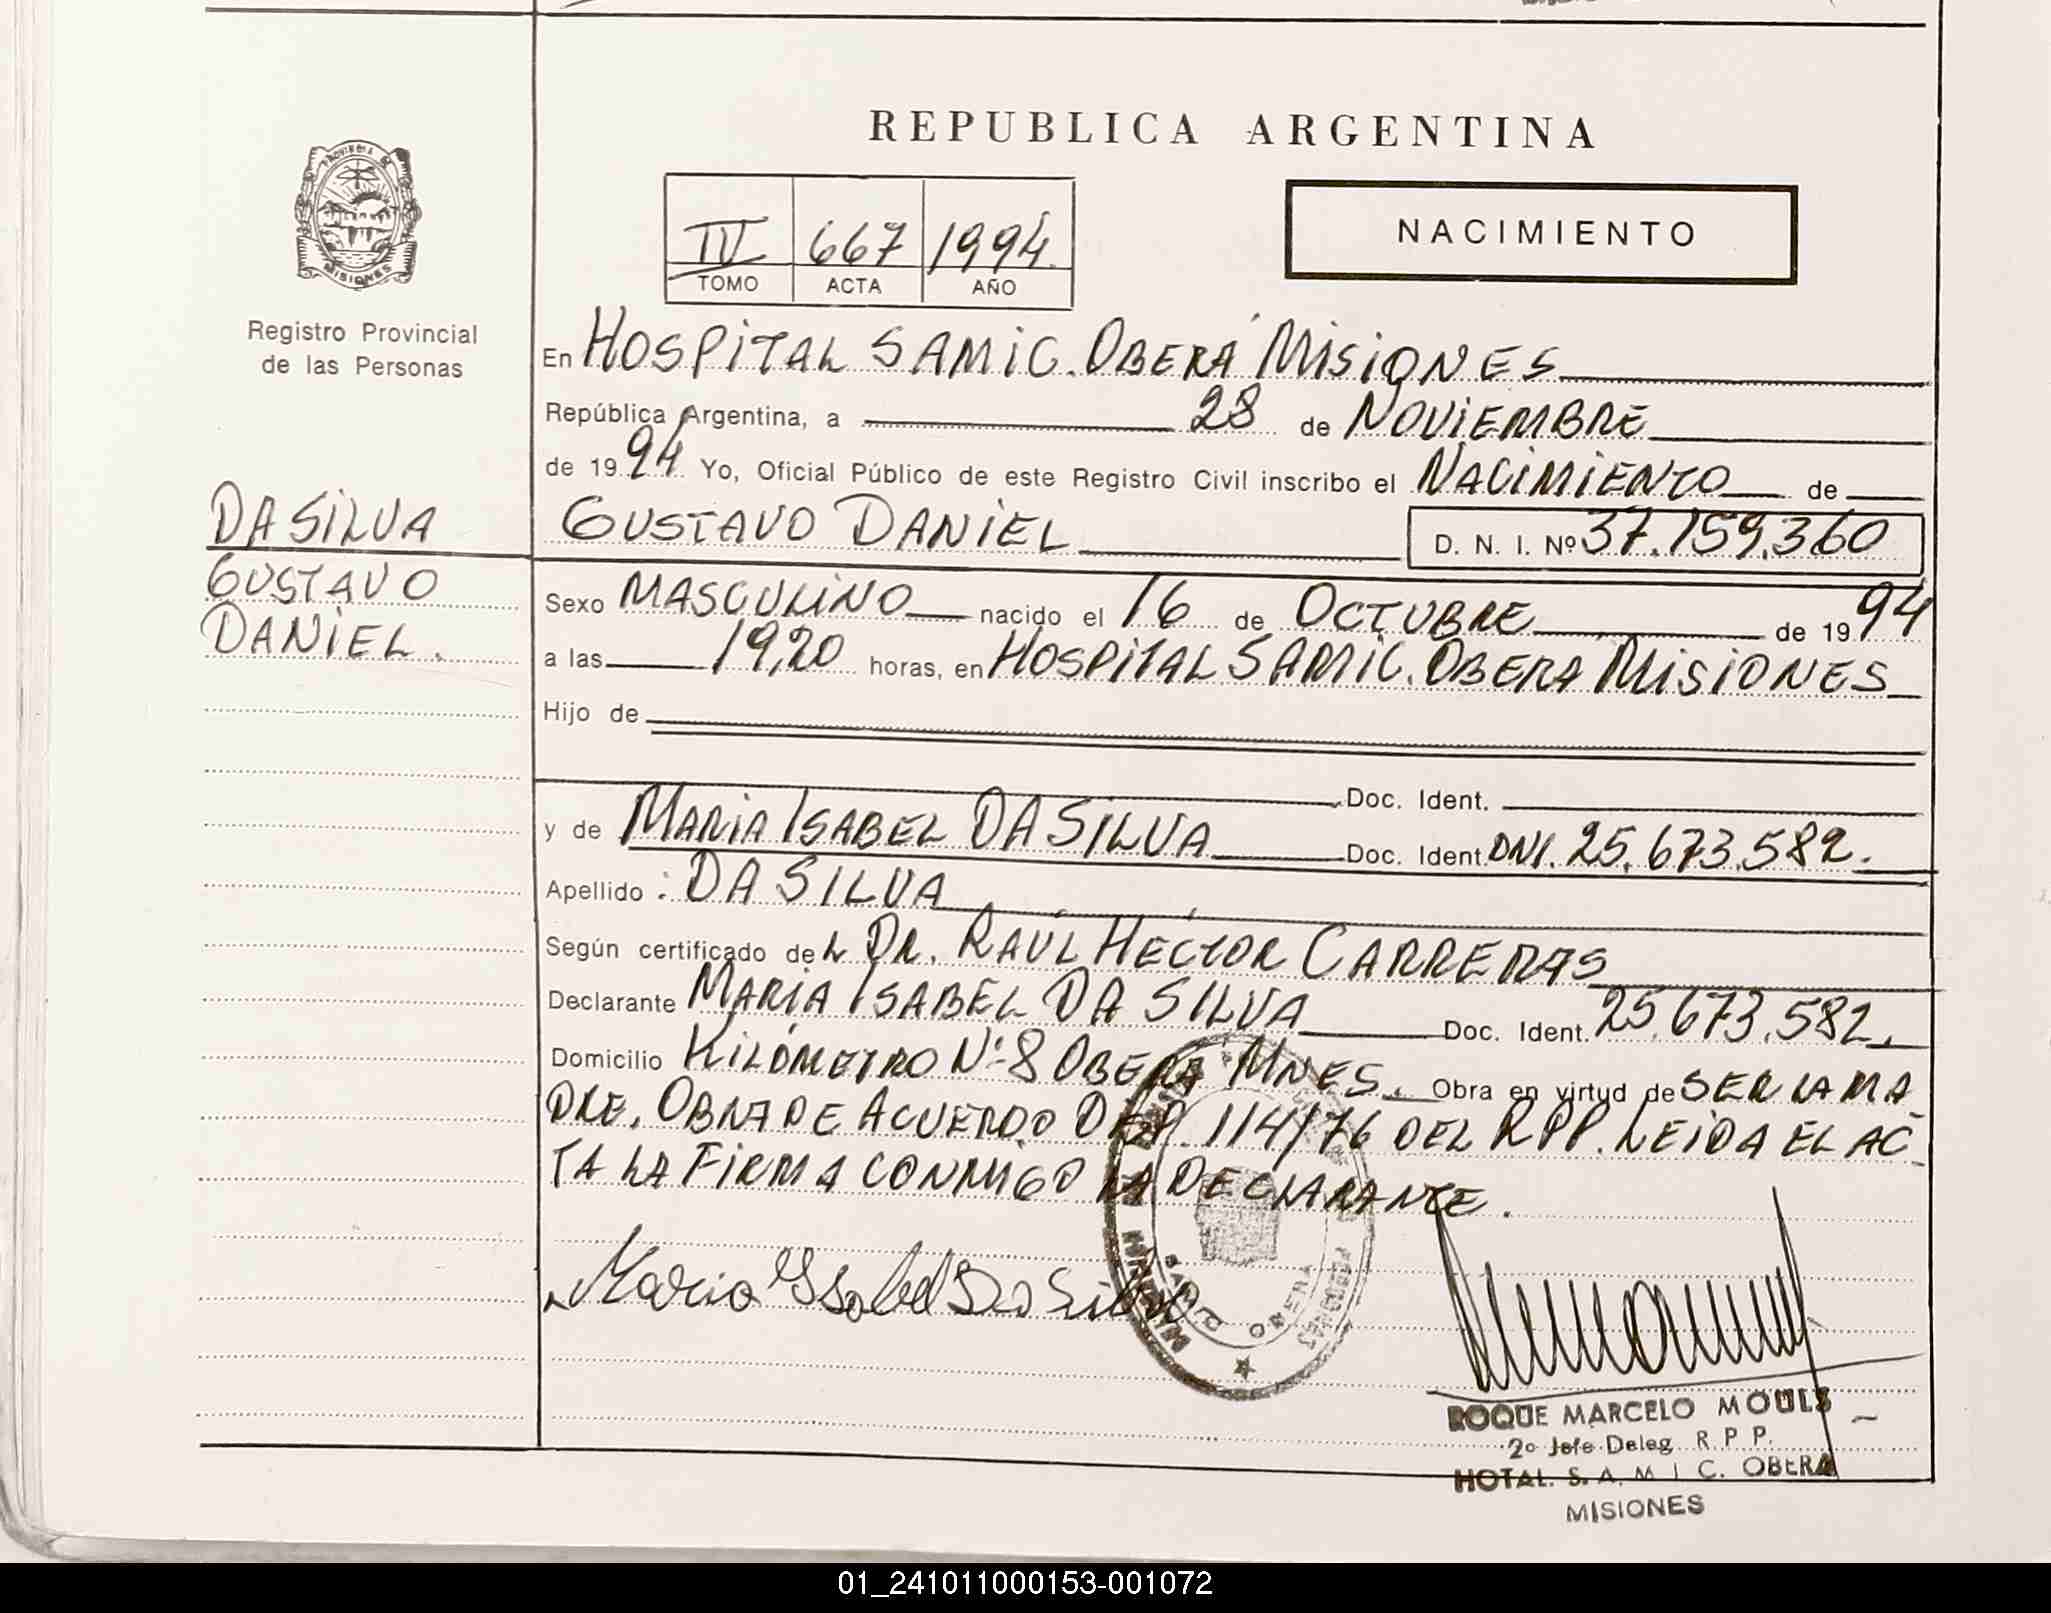 REPUBLICA ARGENTINA
PROVINCIA DE
MISIONES
Registro Provincial
de las Personas
IV 667 1994
TOMO ACTA AÑO
NACIMIENTO
En HOSPITAL SAMIC. OBERÁ MISIONES
República Argentina, a 28 de NOVIEMBRE
de 1994 Yo, Oficial Público de este Registro Civil inscribo el NACIMIENTO de
DA SILVA GUSTAVO DANIEL D. N. I. Nº 37.159.360
GUSTAVO
DANIEL.
Sexo MASCULINO nacido el 16 de OCTUBRE de 1994
a las 19,20 horas, en HOSPITAL SAMIC. OBERA MISIONES
Hijo de
Doc. Ident.
y de MARIA ISABEL DA SILVA Doc. Ident. DNI. 25.673.582.
Apellido : DA SILVA
Según certificado del DR. RAÚL HÉCTOR CARRERAS
Declarante MARIA ISABEL DA SILVA Doc. Ident. 25.673.582.
Domicilio KILÓMETRO Nº 8 OBERA MNES. Obra en virtud de SER LA MA
DRE. OBRA DE ACUERDO DEP. 114/76 DEL RPP. LEIDA EL AC-
TA LA FIRMA CONMIGO LA DECLARANTE.
Maria Ysabel Da Silva
OBERA
MISIONES
ROQUE MARCELO MOULS
2º Jefe Deleg. R. P. P.
HOTAL. S. A. M. I. C. OBERA
MISIONES
01_241011000153-001072